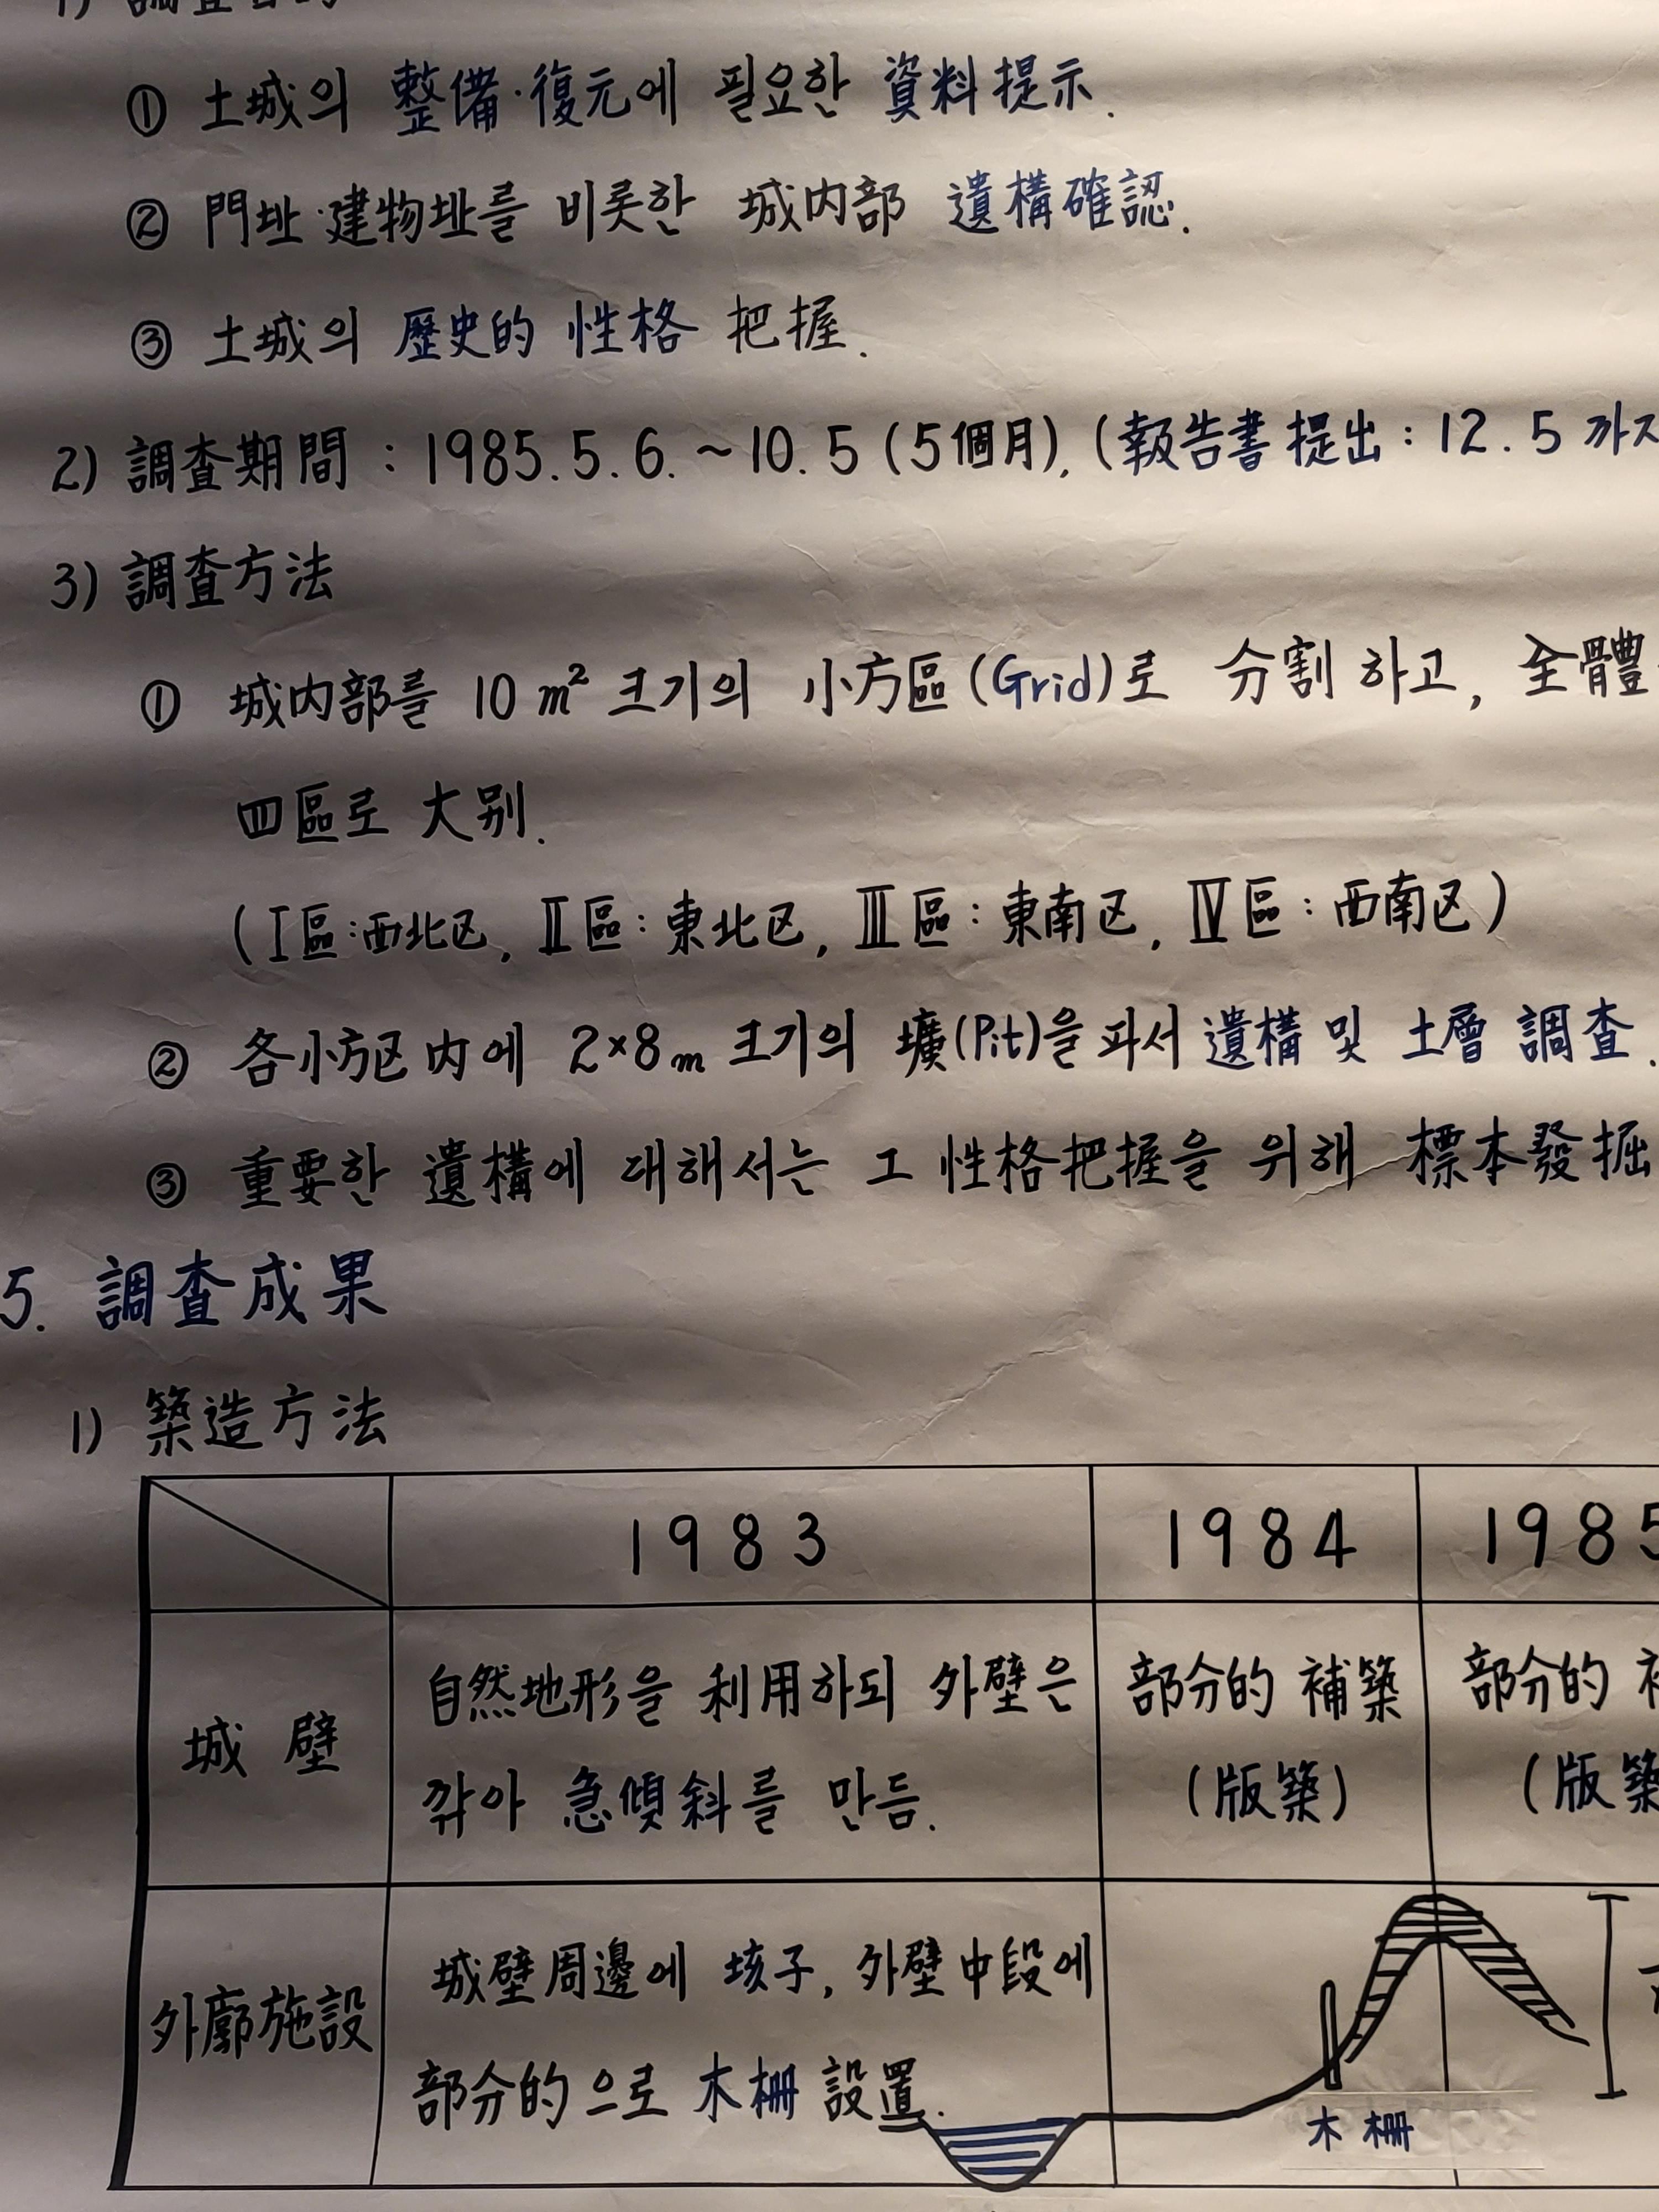 ① 土城의 整備·復元에 필요한 資料提示.
② 門址·建物址를 비롯한 城內部 遺構確認.
③ 土城의 歷史的 性格 把握.
2) 調査期間 : 1985.5.6.~10.5 (5個月), (報告書提出 : 12.5 까지
3) 調査方法
① 城內部를 10㎡ 크기의 小方區(Grid)로 分割하고, 全體
四區로 大別.
(Ⅰ區:西北区, Ⅱ區:東北区, Ⅲ區:東南区, Ⅳ區:西南区)
② 各小方区內에 2×8m 크기의 壙(Pit)을 파서 遺構 및 土層 調査.
③ 重要한 遺構에 대해서는 그 性格把握을 위해 標本發掘
5. 調査成果
1) 築造方法
1983 1984 1985
城壁
自然地形을 利用하되 外壁은
깎아 急傾斜를 만듬.
部分的 補築
(版築)
部分的
(版築
外廓施設
城壁周邊에 垓子, 外壁中段에
部分的으로 木柵 設置.
木柵